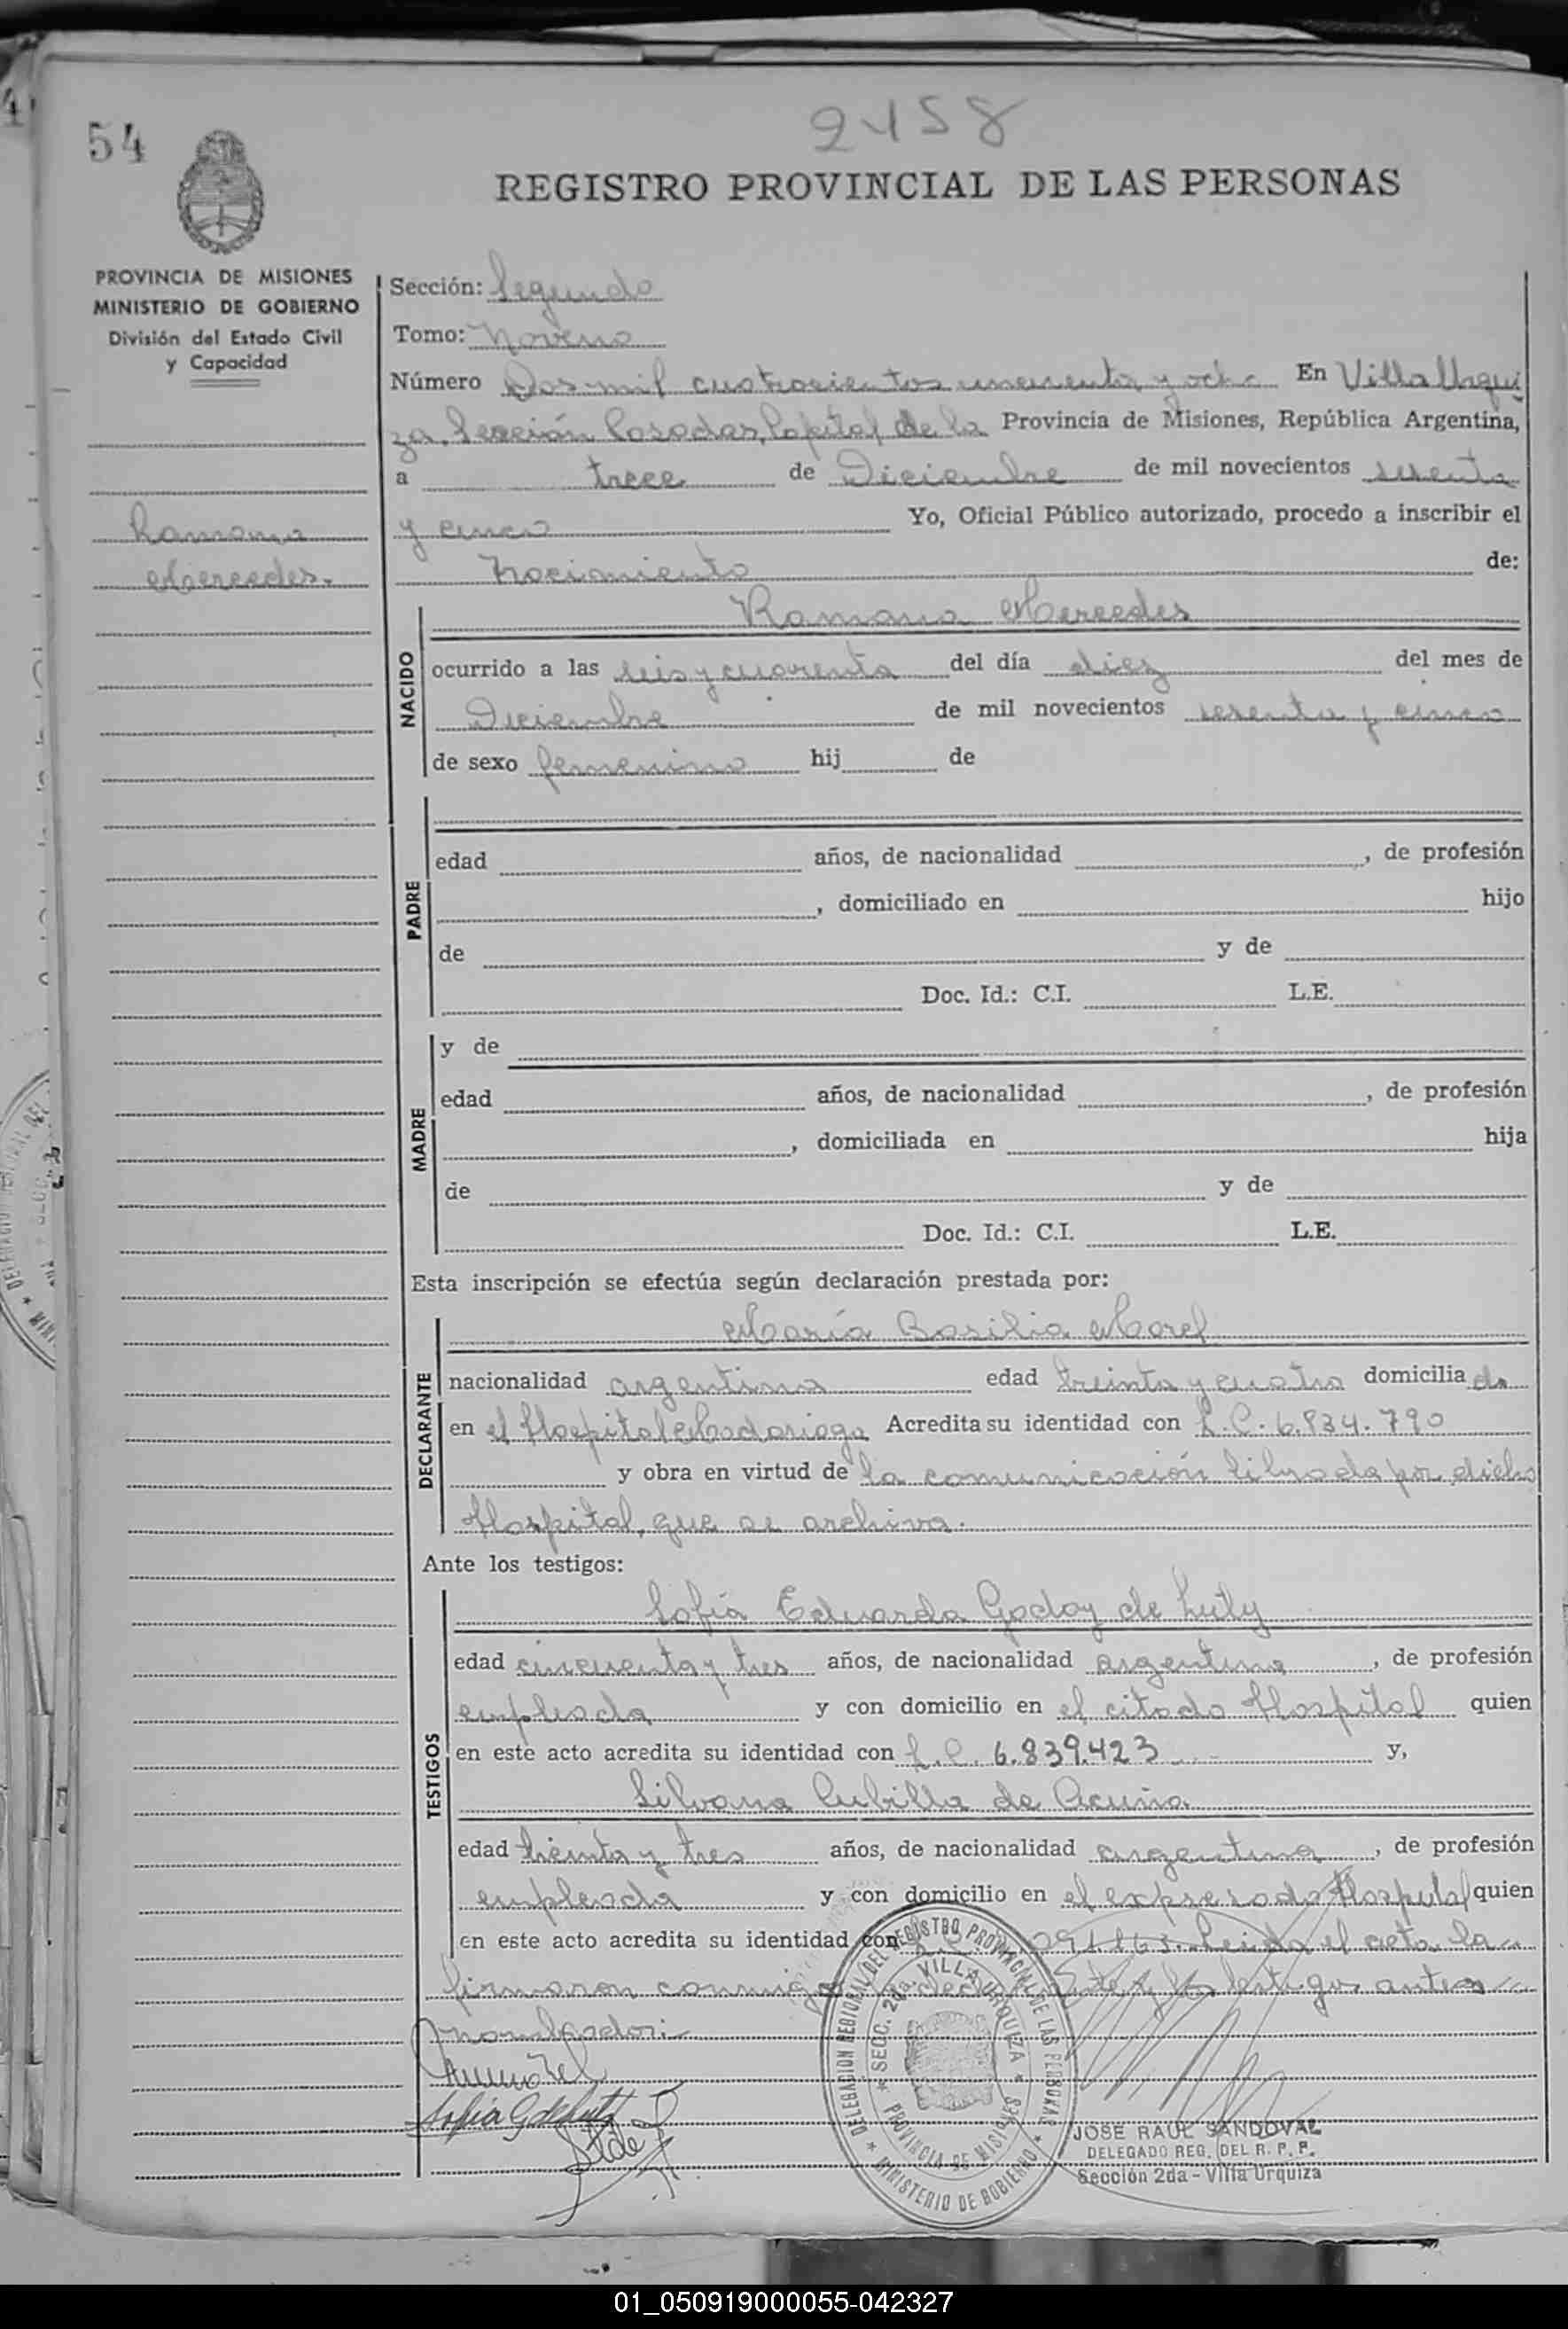 54
2458
REGISTRO PROVINCIAL DE LAS PERSONAS
PROVINCIA DE MISIONES
MINISTERIO DE GOBIERNO
División del Estado Civil
y Capacidad
Ramona
Mercedes.
Sección: Segunda
Tomo: Noveno
Número Dos mil cuatrocientos cincuenta y ocho En Villa Urqui
za, Sección Posadas, Capital de la Provincia de Misiones, República Argentina,
a trece de Diciembre de mil novecientos sesenta
y cinco Yo, Oficial Público autorizado, procedo a inscribir el
Nacimiento de:
NACIDO
Ramona Mercedes
ocurrido a las seis y cuarenta del día diez del mes de
Diciembre de mil novecientos sesenta y cinco
de sexo femenino hij de
PADRE
edad años, de nacionalidad , de profesión
, domiciliado en hijo
de y de
Doc. Id.: C.I. L.E.
MADRE
y de
edad años, de nacionalidad , de profesión
, domiciliada en hija
de y de
Doc. Id.: C.I. L.E.
Esta inscripción se efectúa según declaración prestada por:
DECLARANTE
María Basilia Morel
nacionalidad argentina edad treinta y cuatro domiciliada
en el Hospital Madariaga Acredita su identidad con L.C. 6.834.790
y obra en virtud de la comunicación librada por dicho
Hospital, que se archiva.
Ante los testigos:
TESTIGOS
Sofía Eduarda Godoy de
edad cincuenta y tres años, de nacionalidad argentina, de profesión
empleada y con domicilio en el citado Hospital quien
en este acto acredita su identidad con L.C. 6.839.423 y,
Silvana Cubilla de Acuña
edad treinta y tres años, de nacionalidad argentina, de profesión
empleada y con domicilio en el expresado Hospital quien
en este acto acredita su identidad con Leida el acta la
firmaron conmigo la y los testigos antes
nombrados:
DELEGACION REGIONAL DEL REGISTRO PROVINCIAL DE LAS PERSONAS
SECC. 2da. VILLA URQUIZA
PROVINCIA DE MISIONES
MINISTERIO DE GOBIERNO
JOSE RAUL SANDOVAL
DELEGADO REG. DEL R. P. P.
Sección 2da - Villa Urquiza
01_050919000055-042327